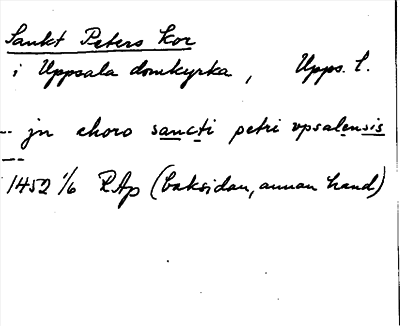 Sankt Peters Kor
i Uppsala domkyrka, Upps. l.
-- jn choro sancti petri vpsalensis
--
1452 1/6 RAp (baksidan, annan hand)